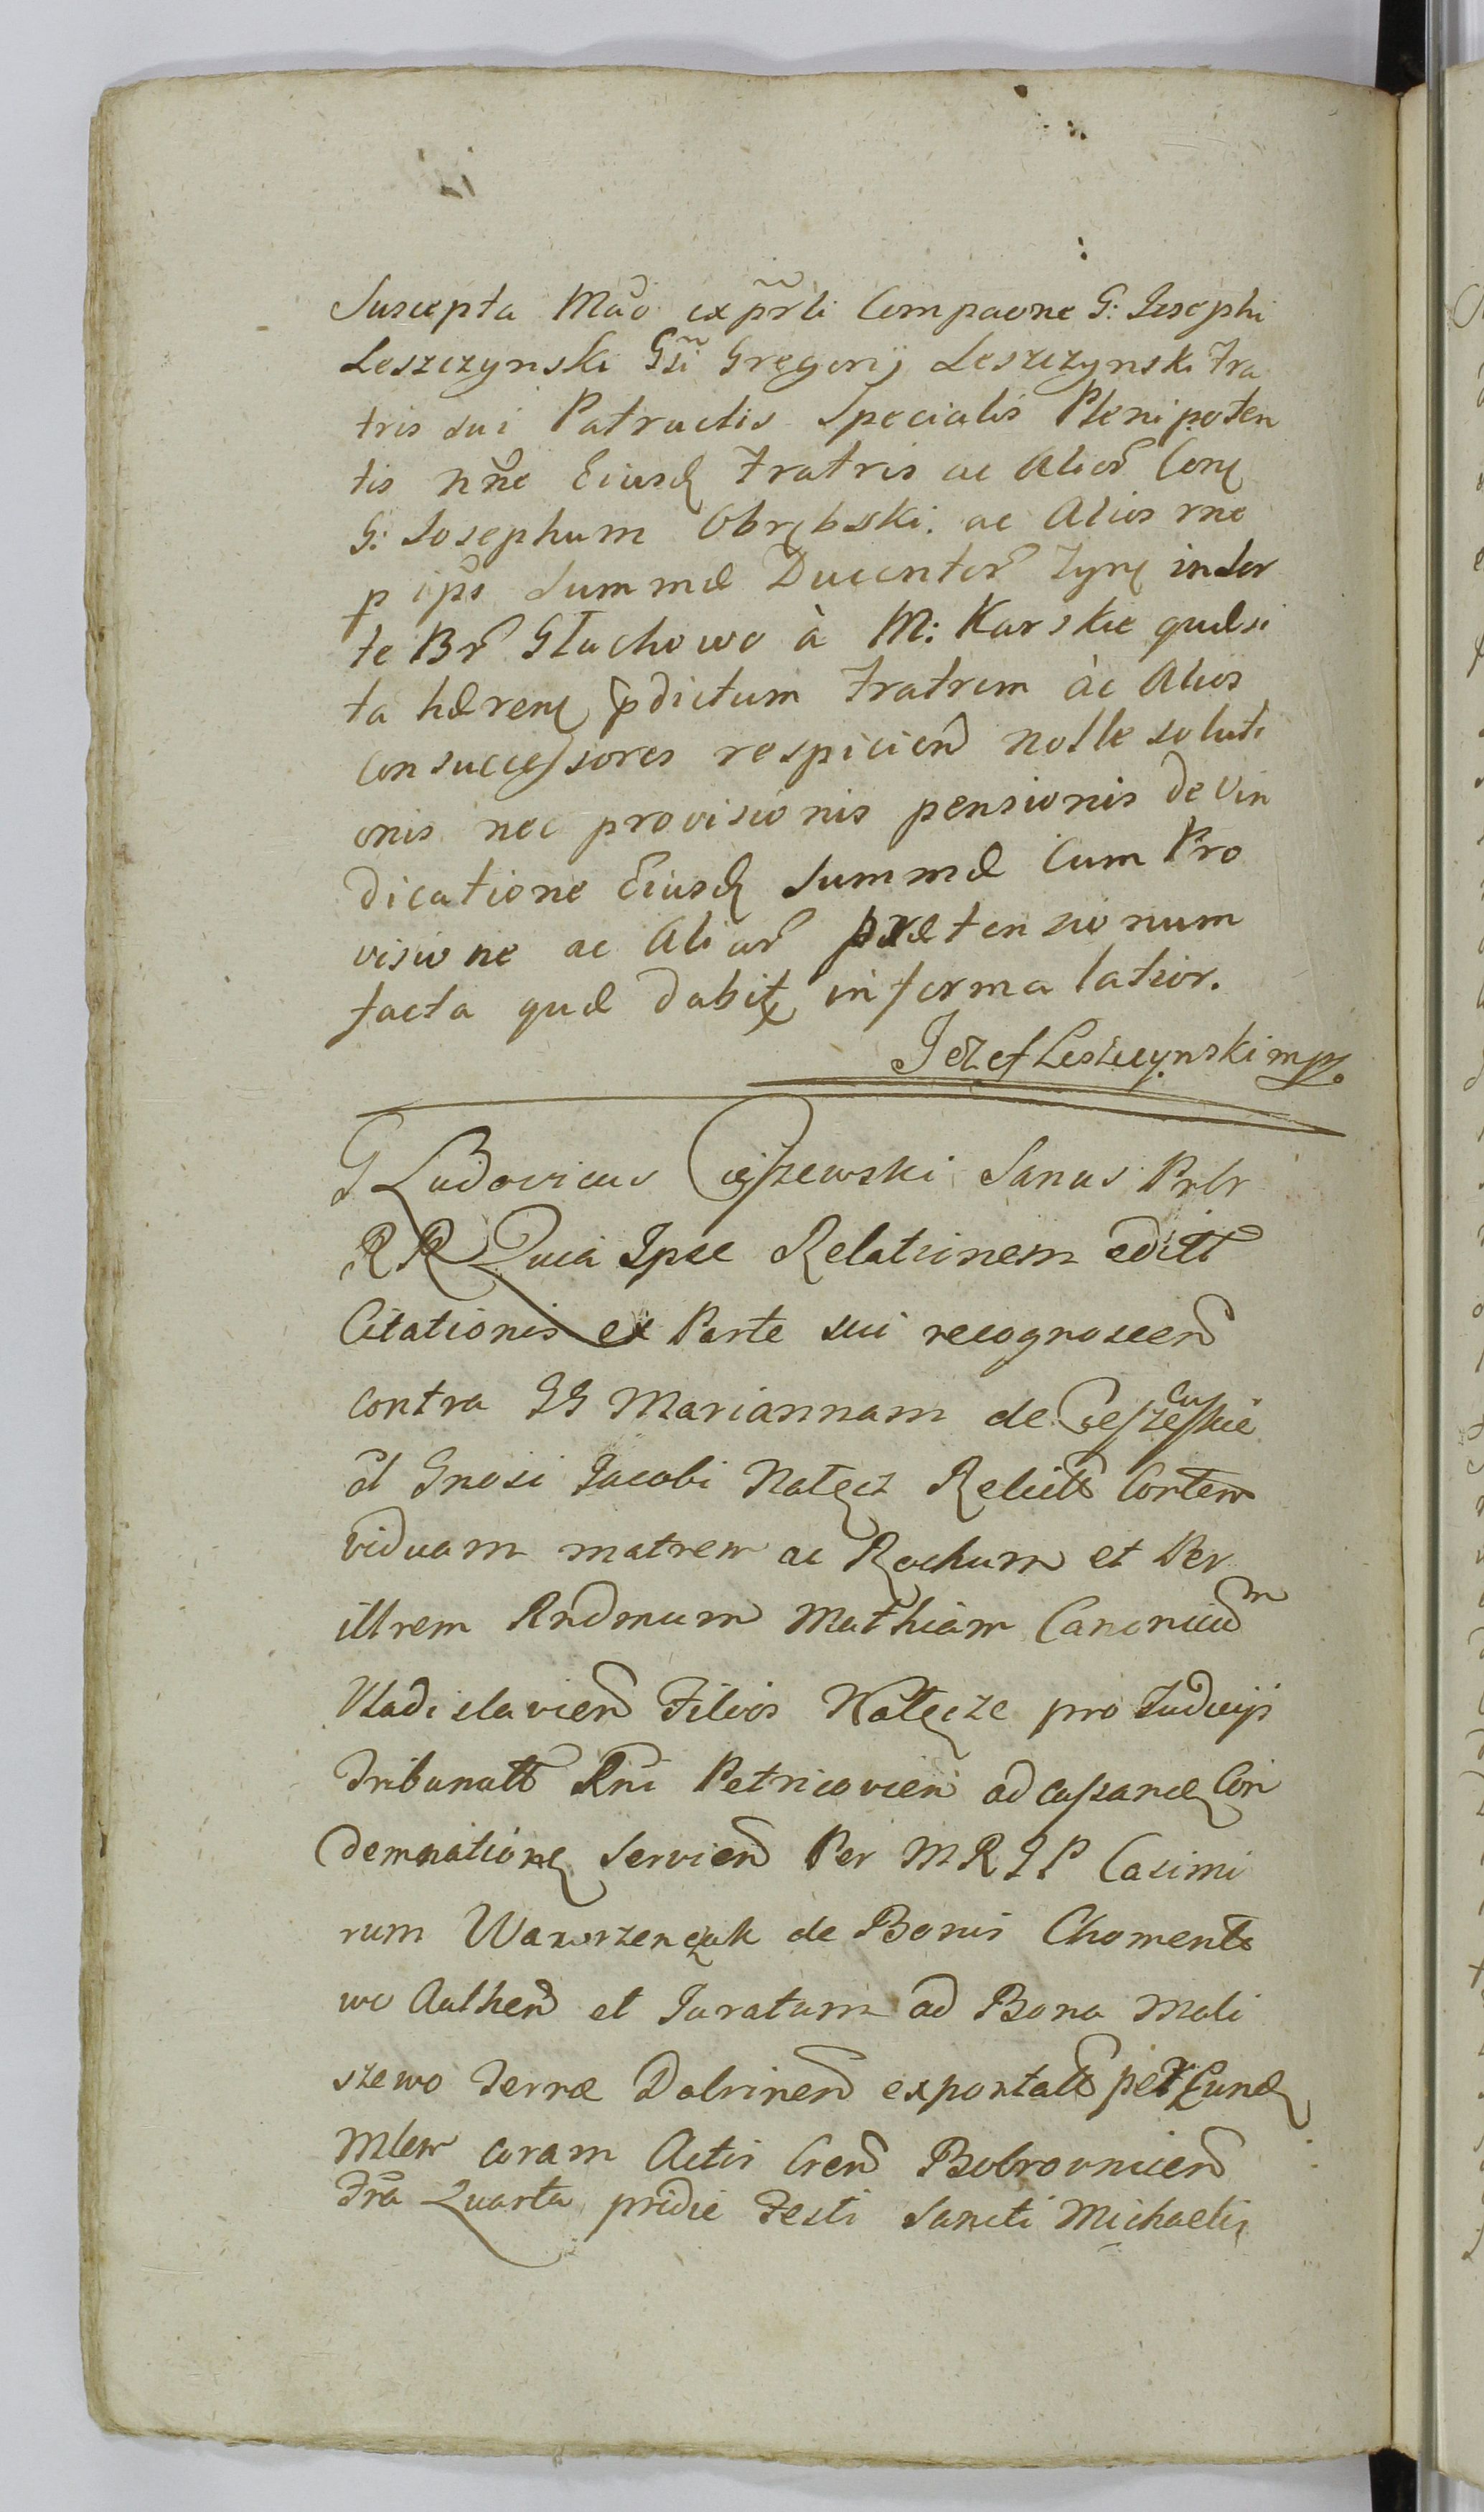 Suscepta Mãd ex pr̃li Compaone G: Josephi
Leszczynski Gs̃i Gregorij Leszczynski Fra
tris sui Patruelis Specialis Plenipoten
tis nñe Eiusd Fratris ac Alior Conq
G: Josephum Obrębski ac Alios rne
p ips̃ Summæ Ducentor Tynf insor
te Br Głuchowo à M: Karskie quæsi
ta hæren p̃dictum Fratrem àc Alios
consuccessores respicien nolle soluti
onis nec provisionis pensionis de vin
dicatione Eiusd Summæ Cum Pro
visione ac Alior prætensionum
facta quæ dabit in forma latior.
Jozef Leszczynski mp.
G Ludovicus Cieszewski Sanus Prbr
RR Quia Ipse Relationem editt
Citationis ex Parte sui recognoscen
contra GG Mariannam de Cieszewskie
ol Gnosi Jacobi Nałęcz Relictt Consortem
viduam matrem ac Rochum et Per
illrem Rndmum Mathiam Canonicum
Vladislavien Filios Nałęcze pro Judicijs
Tribunatt Rñi Petricovien ad cassand Con
demnation servien Per MRJP Casimi
rum Wawrzenczak de Bonis Choment
wo Authen et Juratum ad Bona Mali
szewo Terræ Dobrinen exportatt per Eund
Mlem coram Actis Cren Bobrovnicen
Fr̃a Quarta pridie Festi Sancti Michaelis